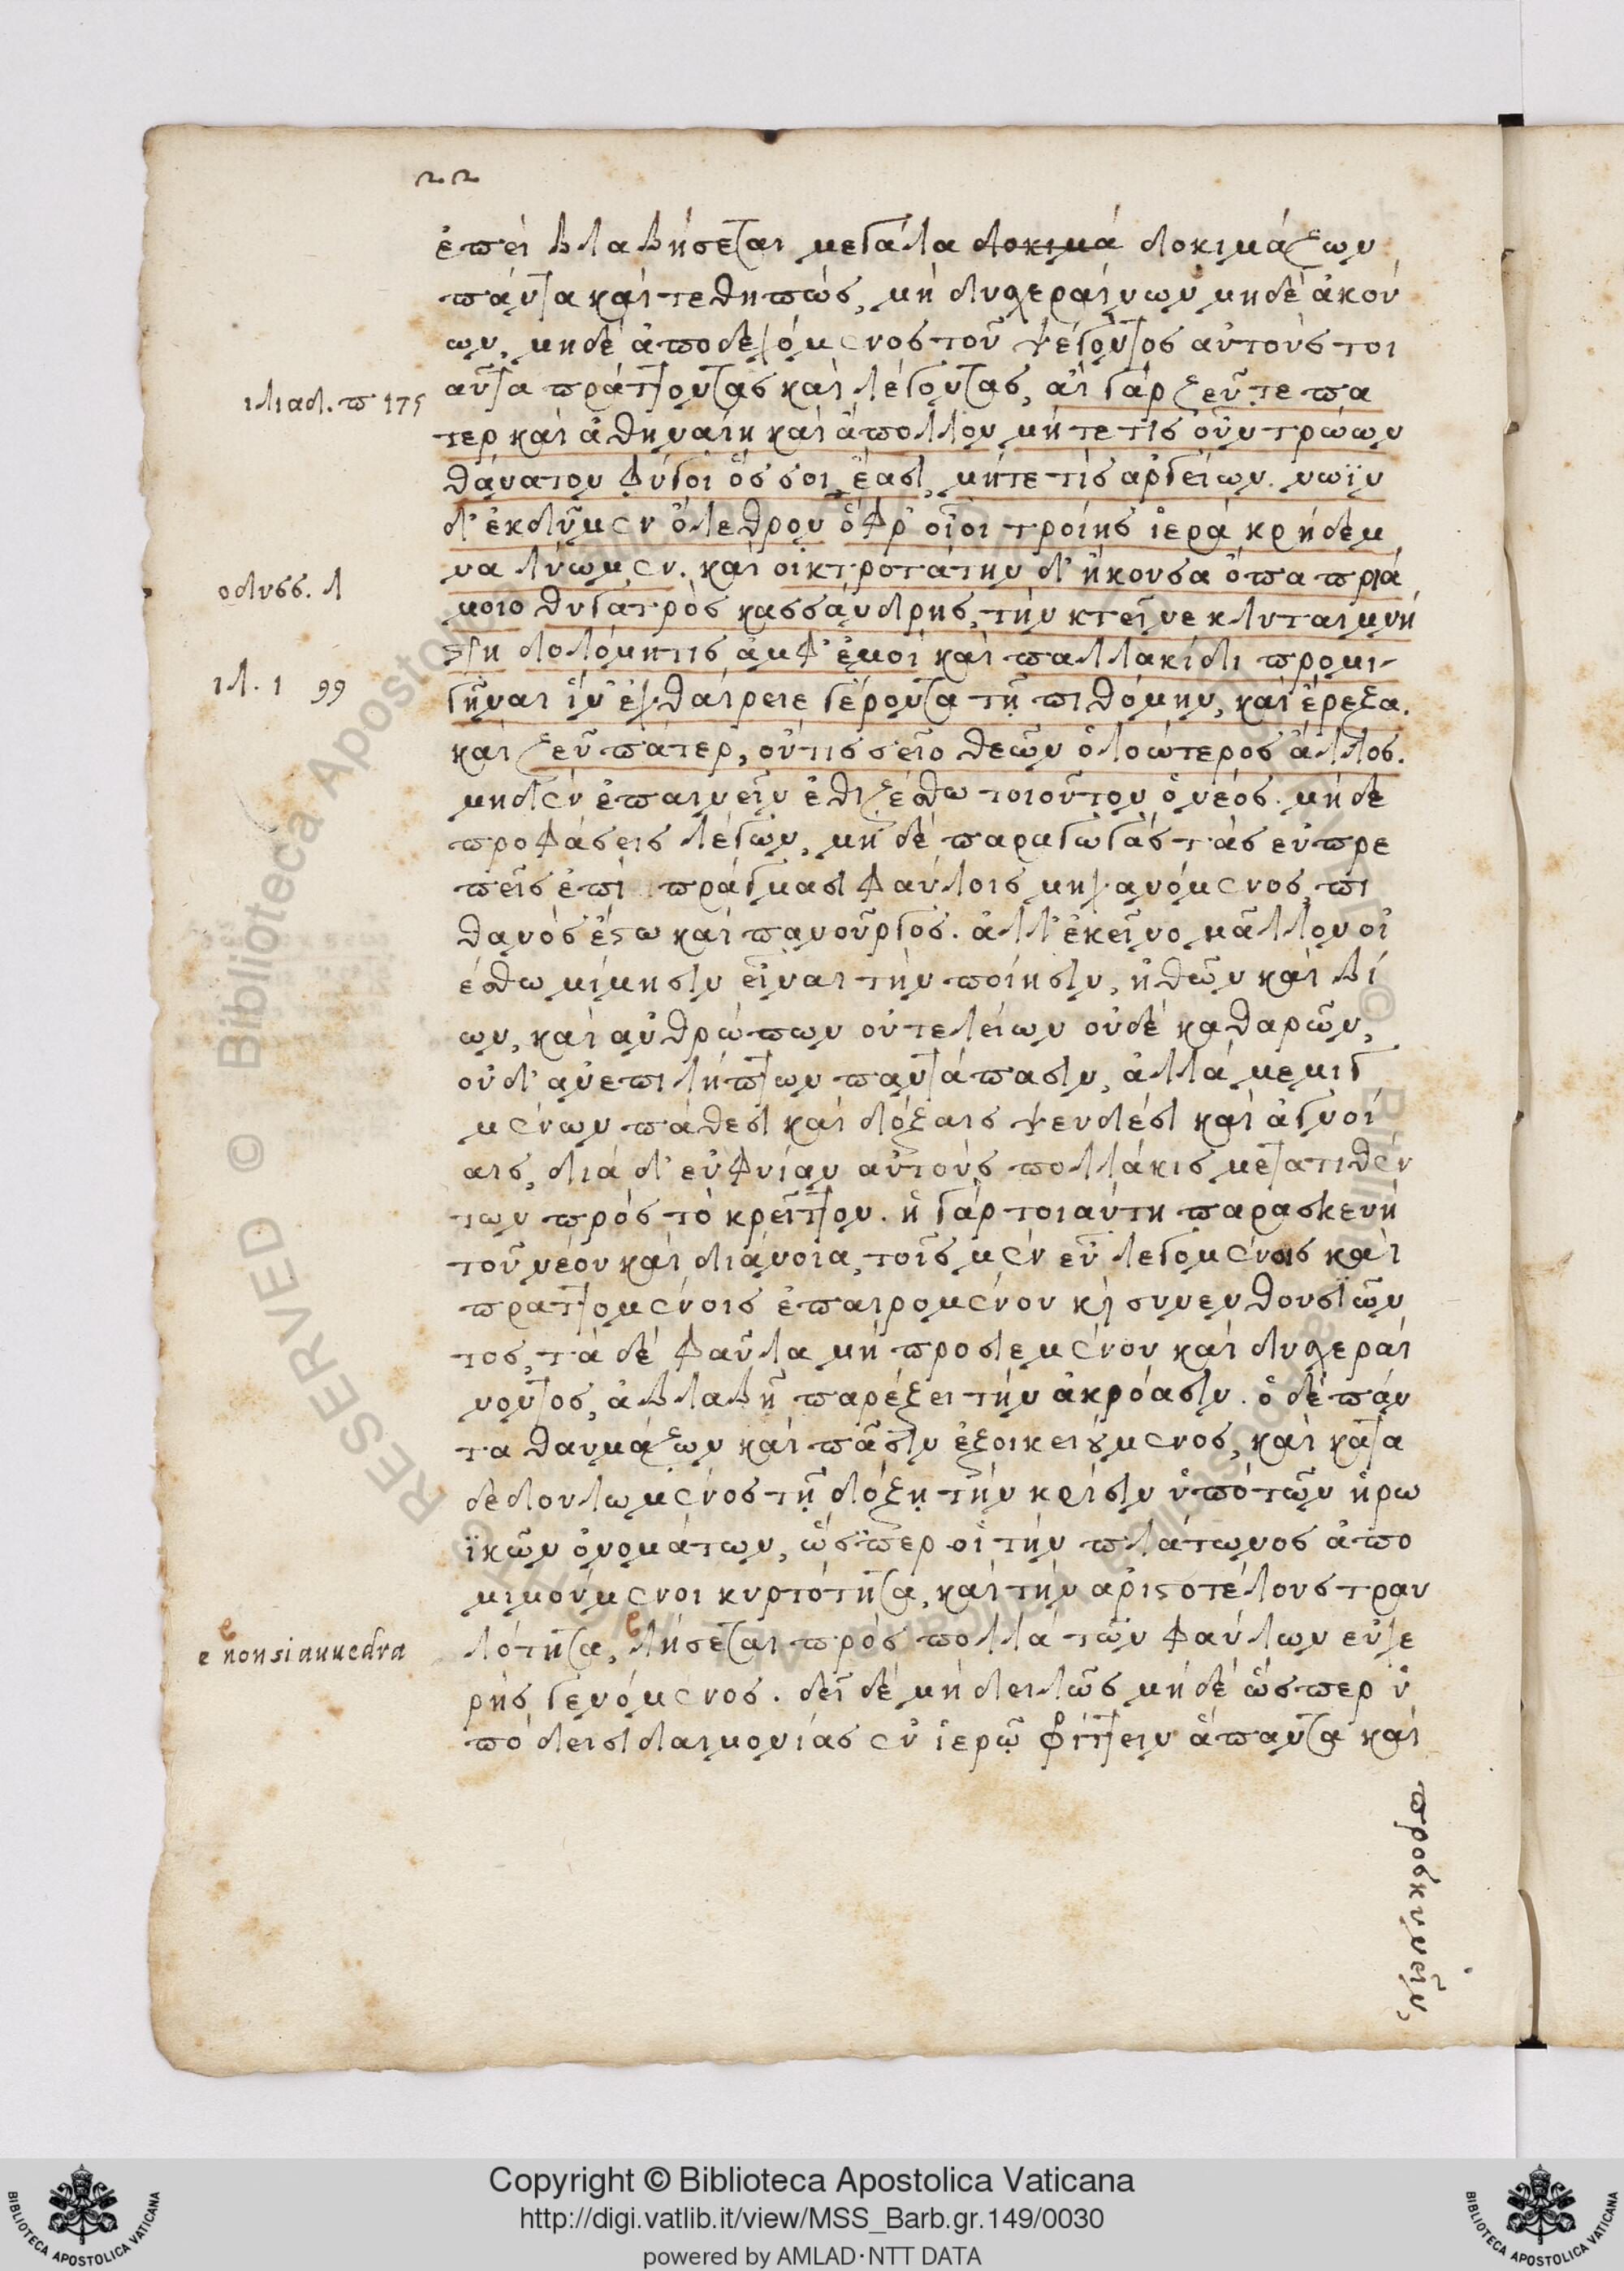 22
ἐπεὶ βλαβήσεται μεγάλα δοκιμά δοκιμάζων
πάντα καὶ τεθηπώς, μὴ δυχεραίνων μηδὲ ἀκού
ων, μηδὲ ἀποδεχόμενος τοῦ ψέγοντος αὐτοὺς τοι
ιλιαδ. π 175
αῦτα πράττοντας καὶ λέγοντας, αἲ γάρ ζεῦ τε πα
τερ καὶ ἀθηναίη καὶ ἄπολλον μήτε τὶς οὖν τρώων
θάνατον φύγοι ὅσσοι ἔασι, μήτε τὶς ἀργείων. νωϊν
δ' ἐκδῦμεν ὄλεθρον ὄφρ' οἶοι τροίης ἱερὰ κρήδεμ
οδυσς. λ
να λύωμεν. καὶ οἰκτροτάτην δ' ἤκουσα ὄπα πριά
μοιο θυγατρὸς κασσάνδρης, τὴν κτεῖνε κλυταιμνή
στη δολόμητις ἀμφ' ἐμοὶ καὶ παλλακίδι προμι-
ιλ. ι 99
γῆναι ἵν' ἐχθαίρειε γέροντα τῇ πιθόμην, καὶ ἔρεξα.
καὶ ζεῦ πάτερ, οὔτις σεῖο θεῶν ὀλοώτερος ἄλλος.
μηδὲν ἐπαινεῖν ἐθιζέσθω τοιοῦτον ὁ νέος. μήδε
προφάσεις λέγων, μὴ δὲ παραγωγάς τὰς εὐπρε
πεῖς ἐπὶ πράγμασι φαύλοις μηχανόμενος, πι
θανὸς ἔστω καὶ πανοῦργος. ἀλλ' ἐκεῖνο μᾶλλον οἰ
έσθω μίμησιν εἶναι τὴν ποίησιν, ἠθῶν καὶ βί
ων, καὶ ἀνθρώπων οὐ τελείων οὐδὲ καθαρῶν,
οὐδ' ἀνεπιλήπτων παντάπασιν, ἀλλὰ μεμιγ
μένων πάθεσι καὶ δόξαις ψευδέσι καὶ ἀγνοί
αις, διὰ δ' εὐφυίαν αὑτοὺς πολλάκις μετατιθέν
των πρὸς τὸ κρεῖττον. ἡ γὰρ τοιαύτη παρασκευὴ
τοῦ νέου καὶ διάνοια, τοῖς μὲν εὖ λεγομένοις καὶ
πραττομένοις ἐπαιρομένου κὶ συνενθουσιῶν
τος, τὰ δὲ φαῦλα μὴ προσιεμένου καὶ δυχεραί
νοντος, ἀβλαβῆ παρέξει τὴν ἀκρόασιν. ὁ δὲ πάν
τα θαυμάζων καὶ πᾶσιν ἐξοικειούμενος, καὶ κατα
δεδουλωμένος τῇ δόξῃ τὴν κρίσιν ὑπὸ τῶν ἡρω
ϊκῶν ὀνομάτων, ὥσπερ οἱ τὴν πλάτωνος ἀπο
μιμούμενοι κυρτότητα, καὶ τὴν ἀριστοτέλους τραυ
e non si auuedra
λότητα, λήσεται πρὸς πολλὰ τῶν φαύλων εὐχε
ρὴς γενόμενος. δεῖ δὲ μὴ δειλῶς μὴδὲ ὥσπερ ὑ
πὸ δεισιδαιμονίας ἐν ἱερῷ φρίττειν ἅπαντα καὶ
προσκυνεῖν,
Copyright © Biblioteca Apostolica Vaticana
http://digi.vatlib.it/view/MSS_Barb.gr.149/0030
powered by AMLAD·NTT DATA
BIBLIOTECA APOSTOLICA VATICANA
BIBLIOTECA APOSTOLICA VATICANA